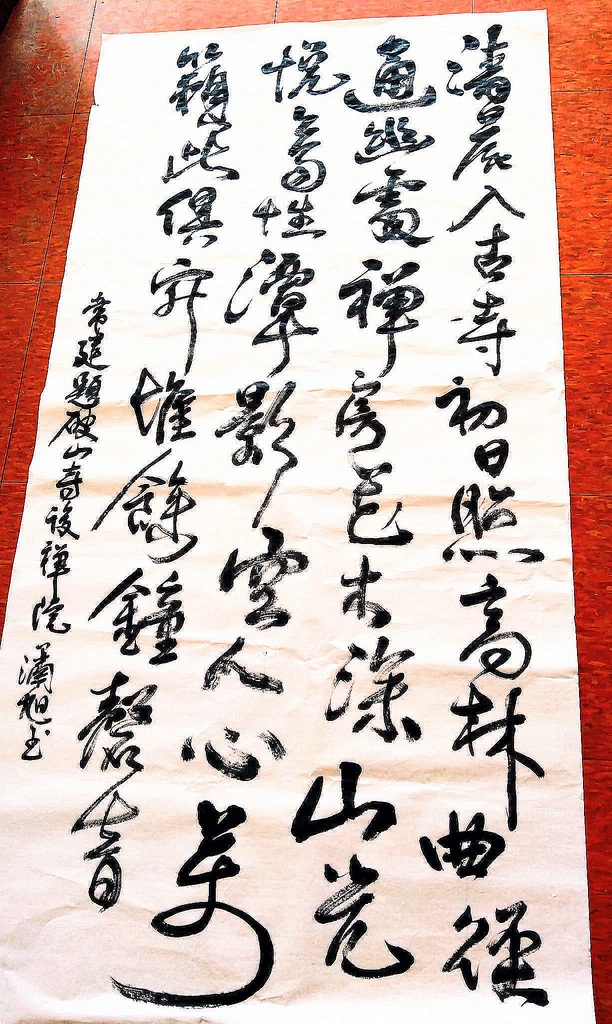 清晨入古寺初日照高林曲徑
通幽處禪房花木深山光
悅鳥性潭影空人心萬
籟此俱寂惟餘鐘磬音
常建題破山寺後禪院 旭书